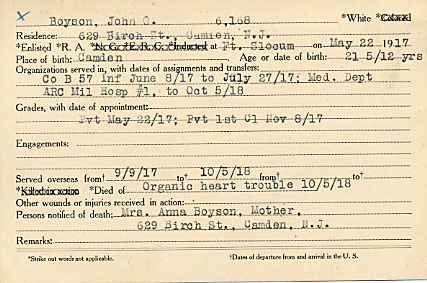 Boyson, John O. 6,168 *White *Colored
Residence: 629 Birch St., Camden, N.J.
*Enlisted *R. A. *N. G. *E. R. C. *Inducted at Ft. Slocum on May 22 1917
Place of birth: Camden Age or date of birth: 21 5/12 yrs
Organizations served in, with dates of assignments and transfers:
Co B 57 Inf June 8/17 to July 27/17; Med. Dept
ARC Mil Hosp #1, to Oct 5/18
Grades, with date of appointment:
Pvt May 22/17; Pvt 1st Cl Nov 8/17
Engagements:
Served overseas from† 9/9/17 to† 10/5/18 from† to†
*Killed in action *Died of Organic heart trouble 10/5/18
Other wounds or injuries received in action:
Persons notified of death: Mrs. Anna Boyson, Mother,
629 Birch St., Camden, N.J.
Remarks:
*Strike out words not applicable. †Dates of departure from and arrival in the U. S.